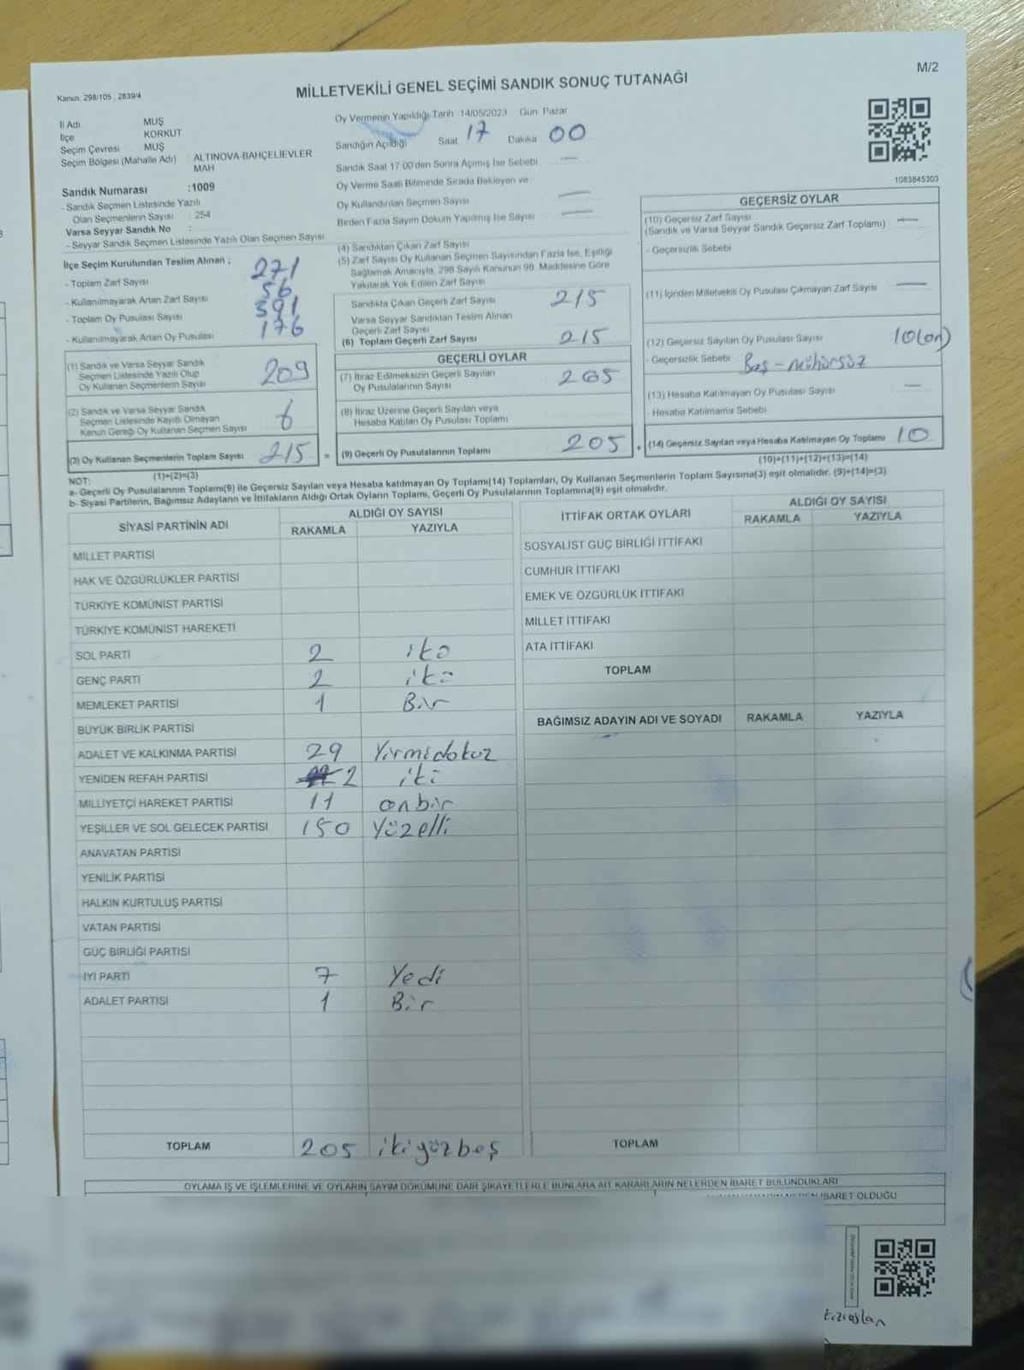 M/2
MİLLETVEKİLİ GENEL SEÇİMİ SANDIK SONUÇ TUTANAĞI
Kanun: 298/105 , 2839/4
İl Adı MUŞ
İlçe KORKUT
Seçim Çevresi MUŞ
Seçim Bölgesi (Mahalle Adı) ALTINOVA-BAHÇELİEVLER MAH
Sandık Numarası :1009
- Sandık Seçmen Listesinde Yazılı
Olan Seçmenlerin Sayısı : 254
Varsa Seyyar Sandık No :
- Seyyar Sandık Seçmen Listesinde Yazılı Olan Seçmen Sayısı
İlçe Seçim Kurulundan Teslim Alınan ;
- Toplam Zarf Sayısı 271
- Kullanılmayarak Artan Zarf Sayısı 56
- Toplam Oy Pusulası Sayısı 391
- Kullanılmayarak Artan Oy Pusulası 176
(1) Sandık ve Varsa Seyyar Sandık
Seçmen Listesinde Yazılı Olup
Oy Kullanan Seçmenlerin Sayısı 209
(2) Sandık ve Varsa Seyyar Sandık
Seçmen Listesinde Kayıtlı Olmayan
Kanun Gereği Oy Kullanan Seçmen Sayısı 6
(3) Oy Kullanan Seçmenlerin Toplam Sayısı 215 =
(1)+(2)=(3)
Oy Vermenin Yapıldığı Tarih :14/05/2023 Gün: Pazar
Sandığın Açıldığı Saat 17 Dakika 00
Sandık Saat 17:00'den Sonra Açılmış İse Sebebi —
Oy Verme Saati Bitiminde Sırada Bekleyen ve
Oy Kullandırılan Seçmen Sayısı —
Birden Fazla Sayım Döküm Yapılmış İse Sayısı —
(4) Sandıktan Çıkan Zarf Sayısı
(5) Zarf Sayısı Oy Kullanan Seçmen Sayısından Fazla İse, Eşitliği
Sağlamak Amacıyla, 298 Sayılı Kanunun 98. Maddesine Göre
Yakılarak Yok Edilen Zarf Sayısı
Sandıkta Çıkan Geçerli Zarf Sayısı 215
Varsa Seyyar Sandıktan Teslim Alınan
Geçerli Zarf Sayısı
(6) Toplam Geçerli Zarf Sayısı 215
GEÇERLİ OYLAR
(7) İtiraz Edilmeksizin Geçerli Sayılan
Oy Pusulalarının Sayısı 205
(8) İtiraz Üzerine Geçerli Sayılan veya
Hesaba Katılan Oy Pusulası Toplamı
(9) Geçerli Oy Pusulalarının Toplamı 205 +
1083845303
GEÇERSİZ OYLAR
(10) Geçersiz Zarf Sayısı —
(Sandık ve Varsa Seyyar Sandık Geçersiz Zarf Toplamı)
- Geçersizlik Sebebi
(11) İçinden Milletvekili Oy Pusulası Çıkmayan Zarf Sayısı —
(12) Geçersiz Sayılan Oy Pusulası Sayısı 10(on)
- Geçersizlik Sebebi Boş-mühürsüz
(13) Hesaba Katılmayan Oy Pusulası Sayısı —
Hesaba Katılmama Sebebi
(14) Geçersiz Sayılan veya Hesaba Katılmayan Oy Toplamı 10
(10)+(11)+(12)+(13)=(14)
NOT:
a- Geçerli Oy Pusulalarının Toplamı(9) ile Geçersiz Sayılan veya Hesaba katılmayan Oy Toplamı(14) Toplamları, Oy Kullanan Seçmenlerin Toplam Sayısına(3) eşit olmalıdır. (9)+(14)=(3)
b- Siyasi Partilerin, Bağımsız Adayların ve İttifakların Aldığı Ortak Oyların Toplamı, Geçerli Oy Pusulalarının Toplamına(9) eşit olmalıdır.
SİYASİ PARTİNİN ADI ALDIĞI OY SAYISI
RAKAMLA YAZIYLA
MİLLET PARTİSİ
HAK VE ÖZGÜRLÜKLER PARTİSİ
TÜRKİYE KOMÜNİST PARTİSİ
TÜRKİYE KOMÜNİST HAREKETİ
SOL PARTİ 2 iki
GENÇ PARTİ 2 iki
MEMLEKET PARTİSİ 1 Bir
BÜYÜK BİRLİK PARTİSİ
ADALET VE KALKINMA PARTİSİ 29 Yirmidokuz
YENİDEN REFAH PARTİSİ 2 iki
MİLLİYETÇİ HAREKET PARTİSİ 11 onbir
YEŞİLLER VE SOL GELECEK PARTİSİ 150 Yüzelli
ANAVATAN PARTİSİ
YENİLİK PARTİSİ
HALKIN KURTULUŞ PARTİSİ
VATAN PARTİSİ
GÜÇ BİRLİĞİ PARTİSİ
İYİ PARTİ 7 Yedi
ADALET PARTİSİ 1 Bir
TOPLAM 205 ikiyüzbeş
İTTİFAK ORTAK OYLARI ALDIĞI OY SAYISI
RAKAMLA YAZIYLA
SOSYALİST GÜÇ BİRLİĞİ İTTİFAKI
CUMHUR İTTİFAKI
EMEK VE ÖZGÜRLÜK İTTİFAKI
MİLLET İTTİFAKI
ATA İTTİFAKI
TOPLAM
BAĞIMSIZ ADAYIN ADI VE SOYADI RAKAMLA YAZIYLA
TOPLAM
OYLAMA İŞ VE İŞLEMLERİNE VE OYLARIN SAYIM DÖKÜMÜNE DAİR ŞİKAYETLERLE BUNLARA AİT KARARLARIN NELERDEN İBARET BULUNDUKLARI
İBARET OLDUĞU
Kızılaslan